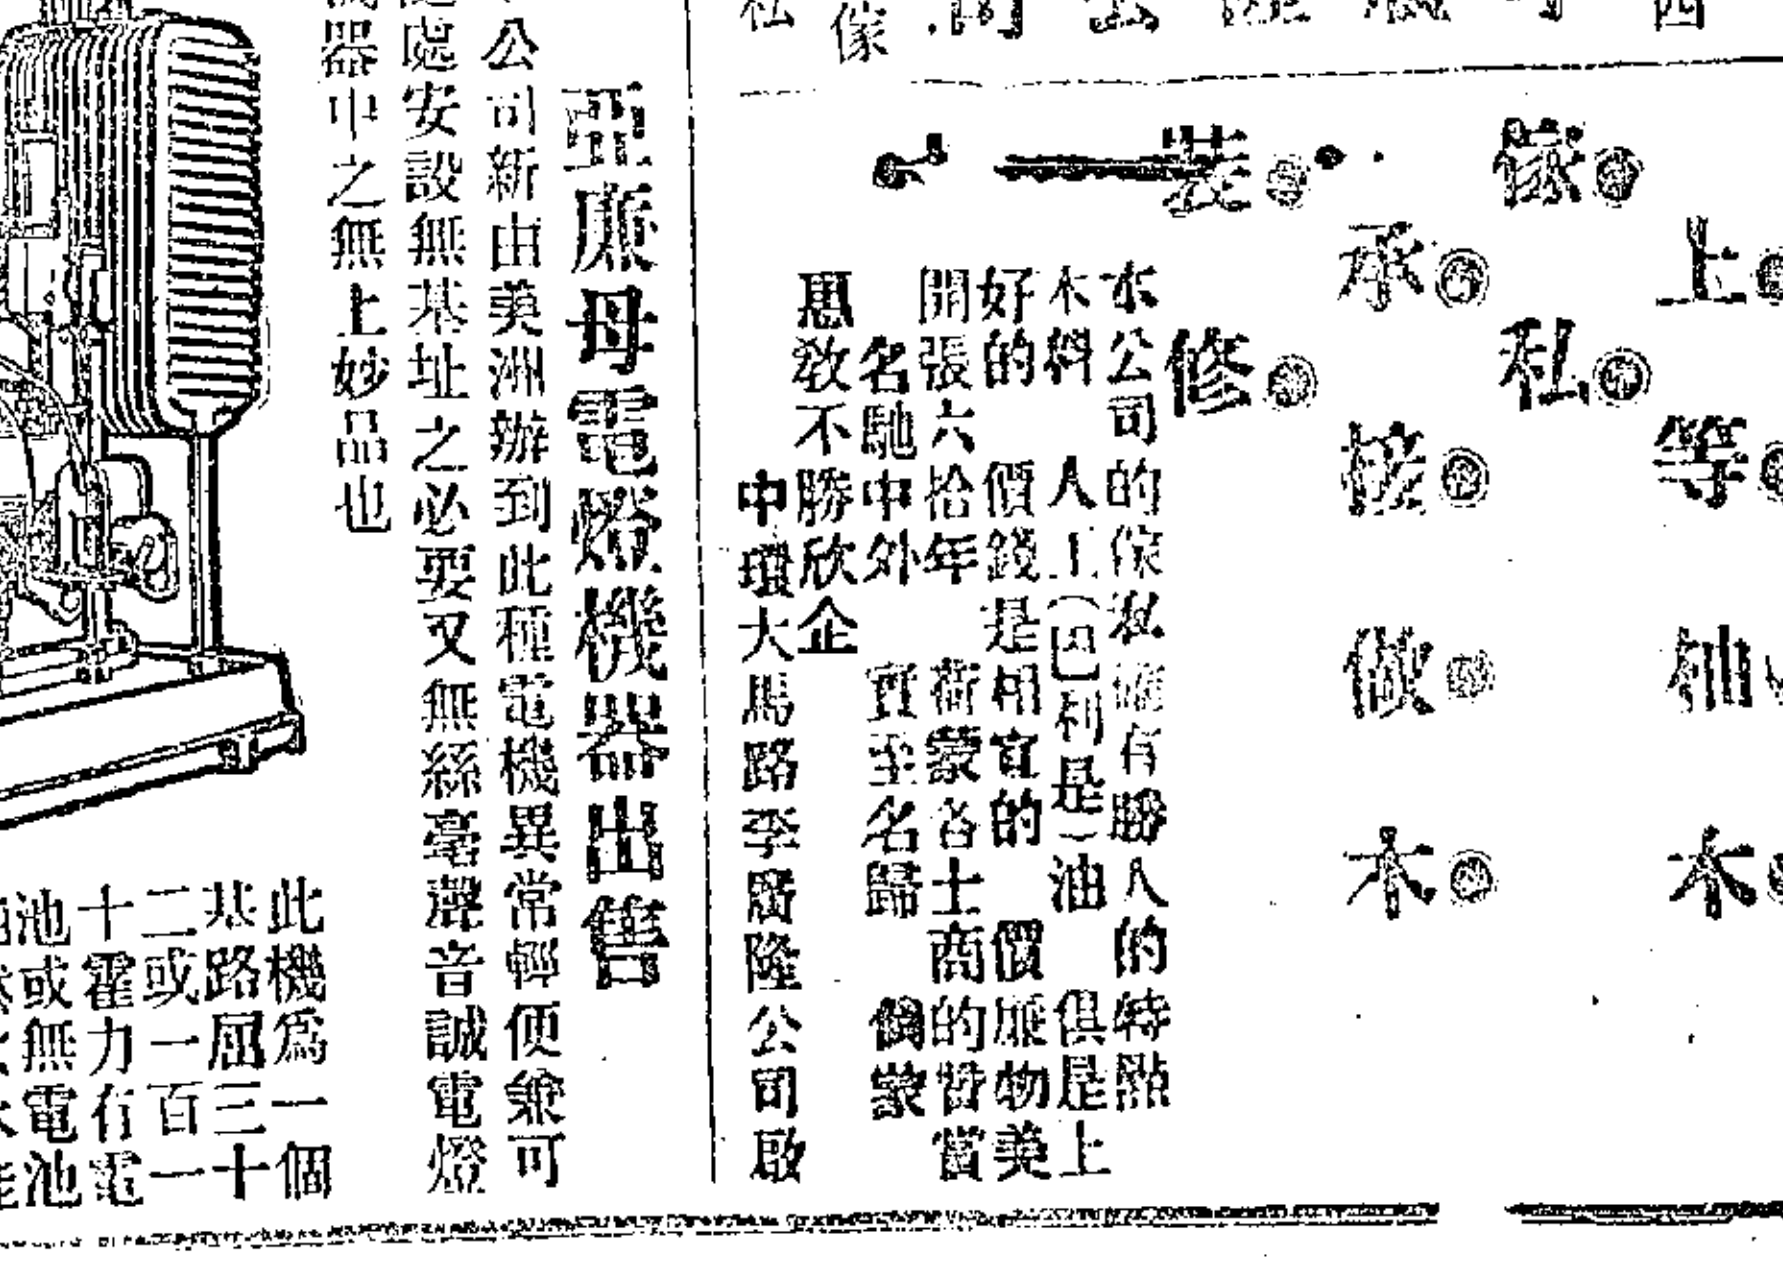 上等柚木
傢私
承接做木
裝修
本公司的傢私確有勝人的特點
木料 人工(巴利是)油 俱是上
好的 價錢是相宜的 價廉物美
開張六拾年 荷蒙各士商的賛當
名馳中外 實至名歸 倘蒙
惠教不勝欣企
中環大馬路李廣隆公司啟
亞廉母電燈機器出售
公司新由美洲辦到此種電機異常輕便兼可
處安設無基址之必要又無絲毫聲音誠電燈
器中之無上妙品也
此機為一個
基路屈三十
二或一百一
十霍力有電
池或無電池